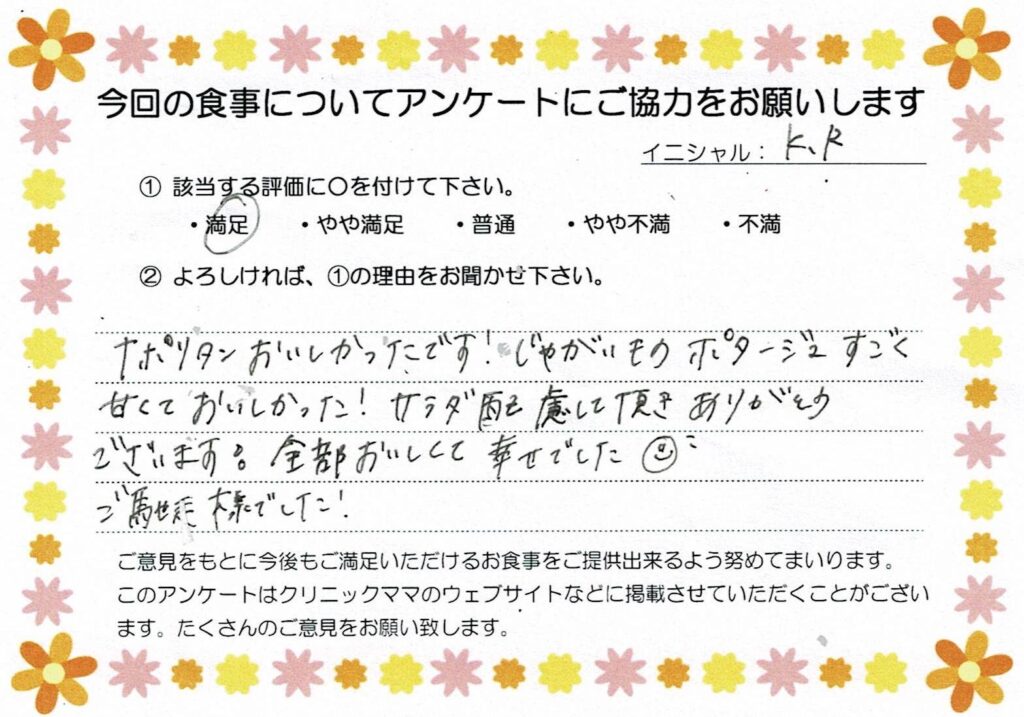 今回の食事についてアンケートにご協力をお願いします
イニシャル： K、R
① 該当する評価に〇を付けて下さい。
・満足 ・やや満足 ・普通 ・やや不満 ・不満
② よろしければ、①の理由をお聞かせ下さい。
ナポリタン おいしかったです！じゃがいもの ポタージュ すごく
甘くて おいしかった！サラダ配慮して頂き ありがとう
ございます。全部おいしくて 幸せでした
ご馳走様でした！
ご意見をもとに今後もご満足いただけるお食事をご提供出来るよう努めてまいります。
このアンケートはクリニックママのウェブサイトなどに掲載させていただくことがござい
ます。たくさんのご意見をお願い致します。